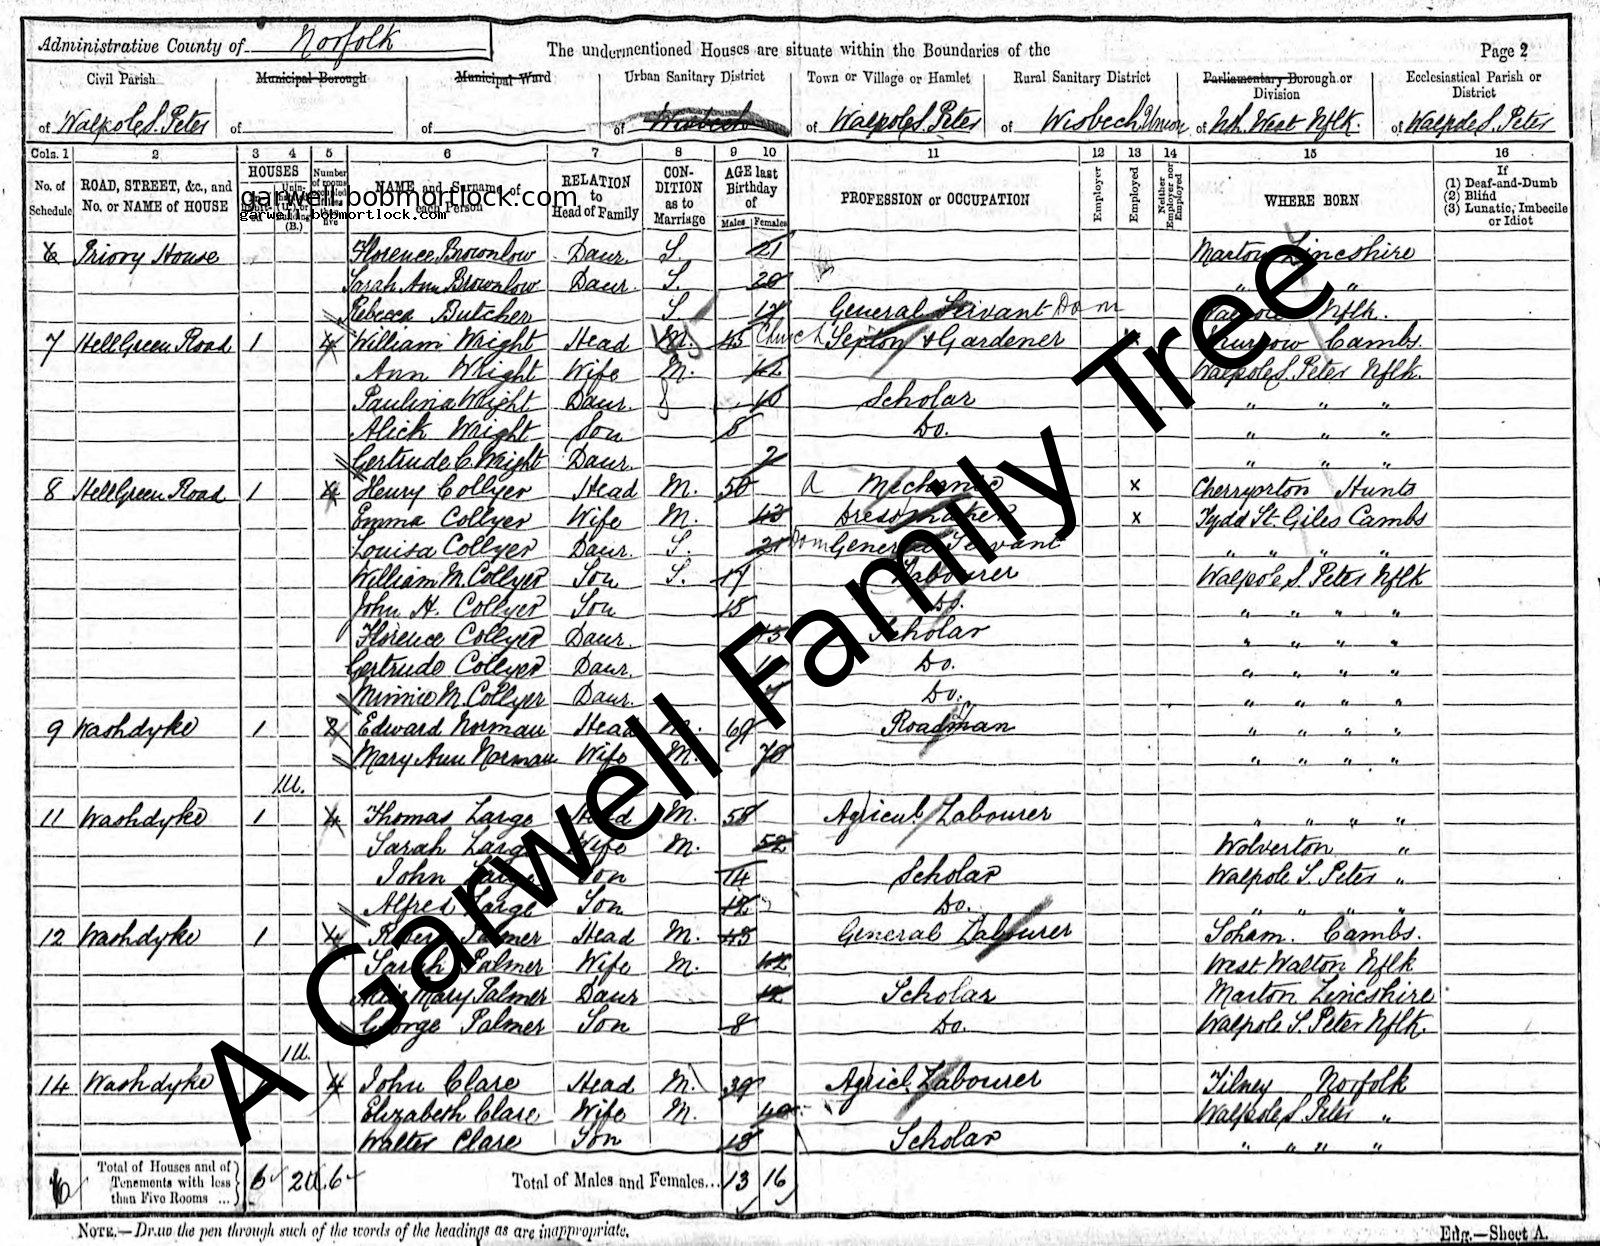 Administrative County of Norfolk
The undermentioned Houses are situate within the Boundaries of the
Page 2
Civil Parish Municipal Borough Municipal Ward Urban Sanitary District Town or Village or Hamlet Rural Sanitary District Parliamentary Borough or Division Ecclesiastical Parish or District
of Walpole S. Peter of of of Wisbech of Walpole S. Peter of Wisbech Union of Nth. West Nflk. of Walpole S. Peter
Cols. 1 2 3 4 5 6 7 8 9 10 11 12 13 14 15 16
No. of Schedule ROAD, STREET, &c., and No. or NAME of HOUSE HOUSES Number of rooms NAME and Surname of each Person RELATION to Head of Family CONDITION as to Marriage AGE last Birthday of Males Females PROFESSION or OCCUPATION Employer Employed Neither Employer nor Employed WHERE BORN If (1) Deaf-and-Dumb (2) Blind (3) Lunatic, Imbecile or Idiot
garwell.bobmortlock.com
garwell.bobmortlock.com
6 Priory House Florence Brownlow Daur. S 21 Marton Lincshire
Sarah Ann Brownlow Daur. S. 20 " "
Rebecca Butcher S General Servant Dom Nflk.
7 Hell Green Road 1 4 William Wright Head M. 45 Church Sexton & Gardener x Cambs.
Ann Wright Wife M. 42 Walpole S. Peter Nflk.
Paulina Wright Daur. 10 Scholar " " "
Alick Wright Son 8 Do. " " "
Gertrude C. Wright Daur. 2 " " "
8 Hell Green Road 1 4 Henry Collyer Head M. 50 A Mechanic x Cherryorton Hunts
Emma Collyer Wife M. 43 Dressmaker x Tydd St. Giles Cambs
Louisa Collyer Daur. S. 21 Dom General Servant " " " "
William M. Collyer Son S. 17 Labourer Walpole S. Peter Nflk
John H. Collyer Son 15 Do. " " " "
Florence Collyer Daur. 13 Scholar " " " "
Gertrude Collyer Daur. Do. " " " "
Minnie M. Collyer Daur. 7 Do. " " " "
9 Washdyke 1 2 Edward Norman Head M. 69 Roadman " " " "
Mary Ann Norman Wife M. 70 " " " "
1U.
11 Washdyke 1 4 Thomas Large Head M. 58 Agricul Labourer " " " "
Sarah Large Wife M. 52 Wolverton "
John Large Son 14 Scholar Walpole S. Peter "
Alfred Large Son 12 Do. " " " "
12 Washdyke 1 4 Robert Palmer Head M. 43 General Labourer Soham. Cambs.
Sarah Palmer Wife M. 42 West Walton Nflk
Alice Mary Palmer Daur 12 Scholar Marton Lincshire
George Palmer Son 8 Do. Walpole S. Peter Nflk.
1U.
14 Washdyke 1 4 John Clare Head M. 39 Agricl. Labourer Tilney Norfolk
Elizabeth Clare Wife M. 40 Walpole S. Peter "
Walter Clare Son 13 Scholar " " " "
6 Total of Houses and of Tenements with less than Five Rooms ... 6 2U 6 Total of Males and Females... 13 16
NOTE.—Draw the pen through such of the words of the headings as are inappropriate.
Eng.—Sheet A.
A Garwell Family Tree